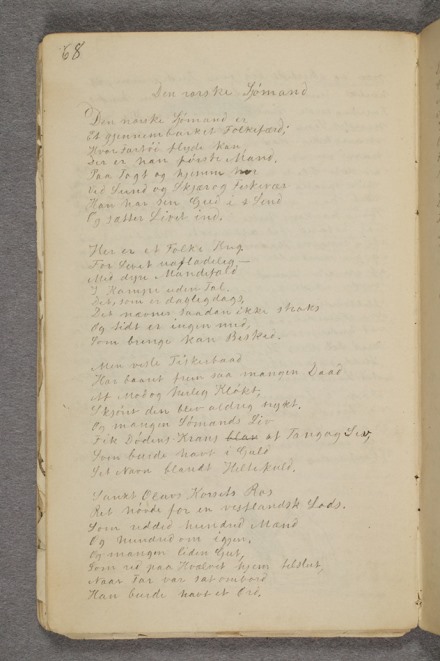 68
Den norske Sømand
Den norske Sømand er
Et gjennembarket Folkefærd;
Hvor Fartøi flyde kan,
Der er han første Mand.
Paa Togt og hjemme her
Ved Sund og Skjær og Fiskevær
Han har sin Gud i Sind
Og sætter Livet ind.
Her er et Folke Krig
For Livet uafladelig—
Med dyre Mandefald
I Kampe uden Tal.
Det, som er daglegdags,
Det nævner saadan ikke straks
Og tidt er ingen med,
Som bringe kan Besked.
Men vesle Fiskerbaad
Har baaret frem saa mangen Daad
Af Mod og herleg Kløkt,
Skjønt den blev aldrig rygt.
Og mangen Sømands Liv
Fik Dødens Krans blan af Tang og Siv,
Som burde havt i Guld
Sit Navn blandt Heltekuld.
Sankt Olavs Korsets Ros
Ret høvde for en vestlandsk Lods,
Som redded hundred Mand
Og hundred om igjen.
Og mangen liden Gut,
Som red paa Hvælvet hjem tilslut,
Naar Far var sat ombord
Han burde havt et Ord.